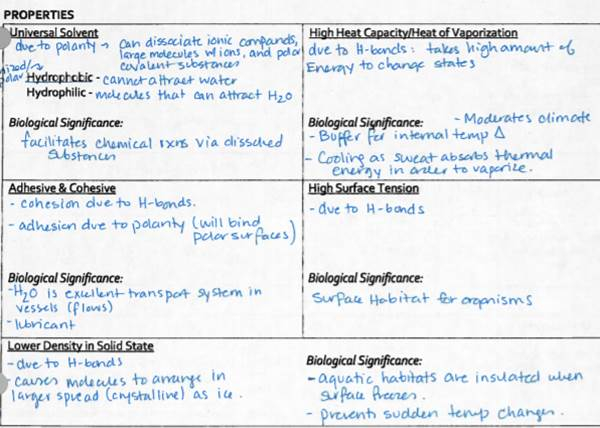 PROPERTIES
Universal Solvent
due to polarity → can dissociate ionic compounds,
large molecules w/ ions, and polar
covalent substances
Hydrophobic - cannot attract water
Hydrophilic - molecules that can attract H₂O
Biological Significance:
facilitates chemical rxns via dissolved
substances
High Heat Capacity/Heat of Vaporization
due to H-bonds: takes high amount of
Energy to change states
Biological Significance: - Moderates climate
- Buffer for internal temp Δ
- Cooling as sweat absorbs thermal
energy in order to vaporize.
Adhesive & Cohesive
- cohesion due to H-bonds.
- adhesion due to polarity (will bind
polar surfaces)
Biological Significance:
- H₂O is excellent transport system in
vessels (flows)
- lubricant
High Surface Tension
- due to H-bonds
Biological Significance:
Surface Habitat for organisms
Lower Density in Solid State
- due to H-bonds
- causes molecules to arrange in
larger spread (crystalline) as ice.
Biological Significance:
- aquatic habitats are insulated when
surface freezes.
- prevents sudden temp changes.